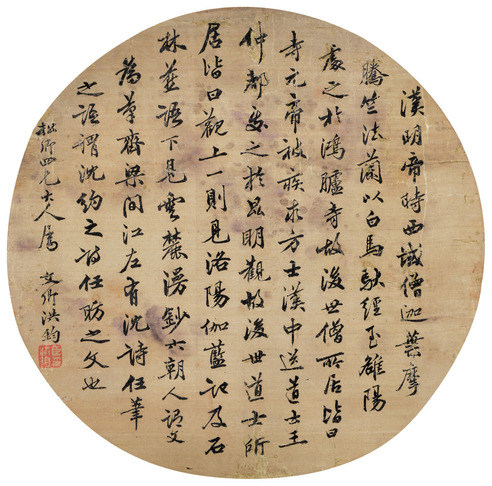 漢明帝時西域僧迦葉摩
騰竺法蘭以白馬馱經至雒陽
處之於鴻臚寺故後世僧所居皆曰
寺元帝被疾求方士漢中送道士王
仲都處之於昆明觀故後世道士所
居皆曰觀上一則見洛陽伽藍記及石
林燕語下見雲麓漫鈔六朝人謂文
為筆齊梁間江左有沈詩任筆
之語謂沈約之詩任昉之文也
松卿四兄大人屬 文卿洪鈞